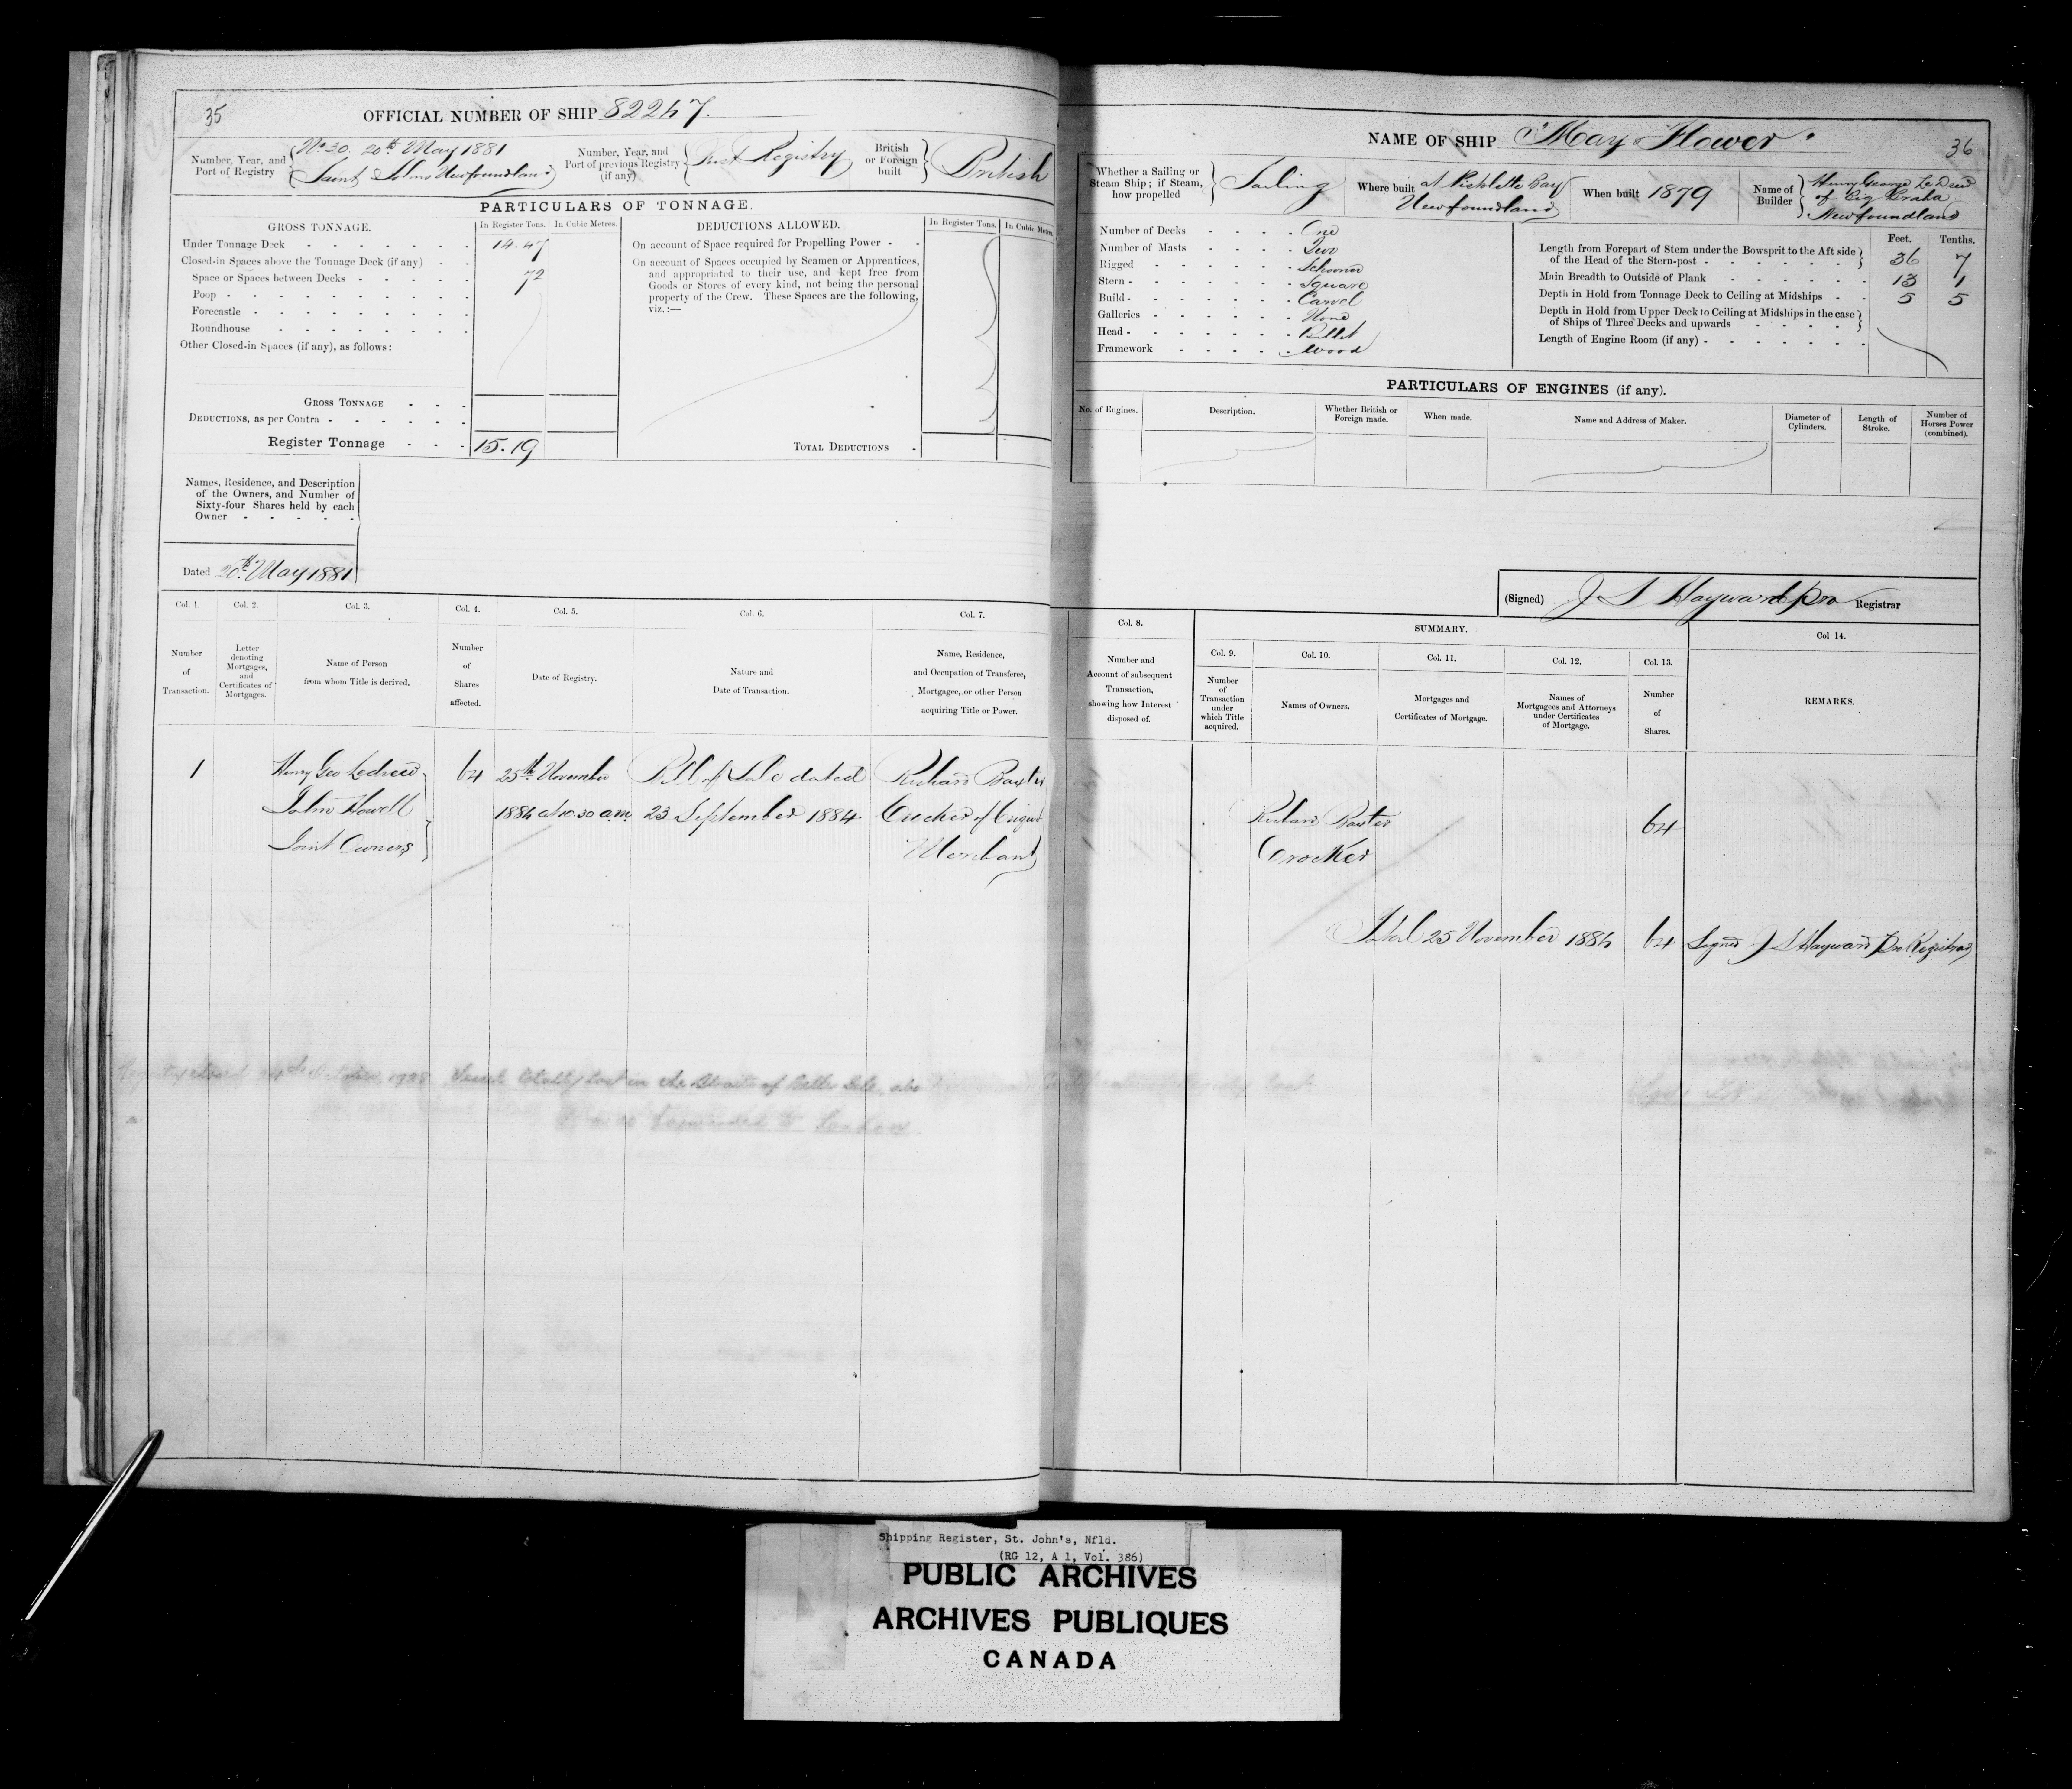 35
OFFICIAL NUMBER OF SHIP 82247.
Number, Year, and Port of Registry
No 30. 20th May 1881
Saint Johns Newfoundland
Number, Year, and Port of previous Registry (if any)
First Registry
British or Foreign built
British
PARTICULARS OF TONNAGE.
GROSS TONNAGE.
In Register Tons.
In Cubic Metres.
Under Tonnage Deck 14.47
Closed-in Spaces above the Tonnage Deck (if any)
Space or Spaces between Decks 72
Poop
Forecastle
Roundhouse
Other Closed-in Spaces (if any), as follows:
GROSS TONNAGE
DEDUCTIONS, as per Contra
Register Tonnage 15.19
DEDUCTIONS ALLOWED.
In Register Tons.
In Cubic Metres
On account of Space required for Propelling Power
On account of Spaces occupied by Seamen or Apprentices,
and appropriated to their use, and kept free from
Goods or Stores of every kind, not being the personal
property of the Crew. These Spaces are the following,
viz.:—
TOTAL DEDUCTIONS
Names, Residence, and Description
of the Owners, and Number of
Sixty-four Shares held by each
Owner
Dated 20th May 1881
Col. 1.
Number of Transaction.
Col. 2.
Letter denoting Mortgages, and Certificates of Mortgages.
Col. 3.
Name of Person from whom Title is derived.
Col. 4.
Number of Shares affected.
Col. 5.
Date of Registry.
Col. 6.
Nature and Date of Transaction.
Col. 7.
Name, Residence,
and Occupation of Transferee,
Mortgagee, or other Person
acquiring Title or Power.
1 Henry Geo Ledrew 64 25th November Bill of Sale dated Richard Baxter
John Howell 1884 at 10.30 a.m. 23 September 1884 Crocker of Brigus
Joint Owners Merchant
Vessel totally lost in the Straits of Belle Isle,
forwarded to London
NAME OF SHIP "May Flower"
36
Whether a Sailing or Steam Ship; if Steam, how propelled
Sailing
Where built
at
Bay
Newfoundland
When built 1879
Name of Builder
Henry George Le Drew
of
Newfoundland
Number of Decks One
Number of Masts Two
Rigged Schooner
Stern Square
Build Carvel
Galleries None
Head Billet
Framework Wood
Feet. Tenths.
Length from Forepart of Stem under the Bowsprit to the Aft side
of the Head of the Stern-post 36 7
Main Breadth to Outside of Plank 13 1
Depth in Hold from Tonnage Deck to Ceiling at Midships 5 5
Depth in Hold from Upper Deck to Ceiling at Midships in the case
of Ships of Three Decks and upwards
Length of Engine Room (if any)
PARTICULARS OF ENGINES (if any).
No. of Engines.
Description.
Whether British or Foreign made.
When made.
Name and Address of Maker.
Diameter of Cylinders.
Length of Stroke.
Number of Horses Power (combined).
(Signed) J S Hayward Pro Registrar
Col. 8.
Number and
Account of subsequent
Transaction,
showing how Interest
disposed of.
SUMMARY.
Col. 9.
Number of Transaction under which Title acquired.
Col. 10.
Names of Owners.
Col. 11.
Mortgages and Certificates of Mortgage.
Col. 12.
Names of Mortgagees and Attorneys under Certificates of Mortgage.
Col. 13.
Number of Shares.
Col 14.
REMARKS.
Richard Baxter 64
Crocker
Total 25 November 1884 64 Signed J S Hayward Pro Registrar
Shipping Register, St. John's, Nfld.
(RG 12, A 1, Vol. 386)
PUBLIC ARCHIVES
ARCHIVES PUBLIQUES
CANADA